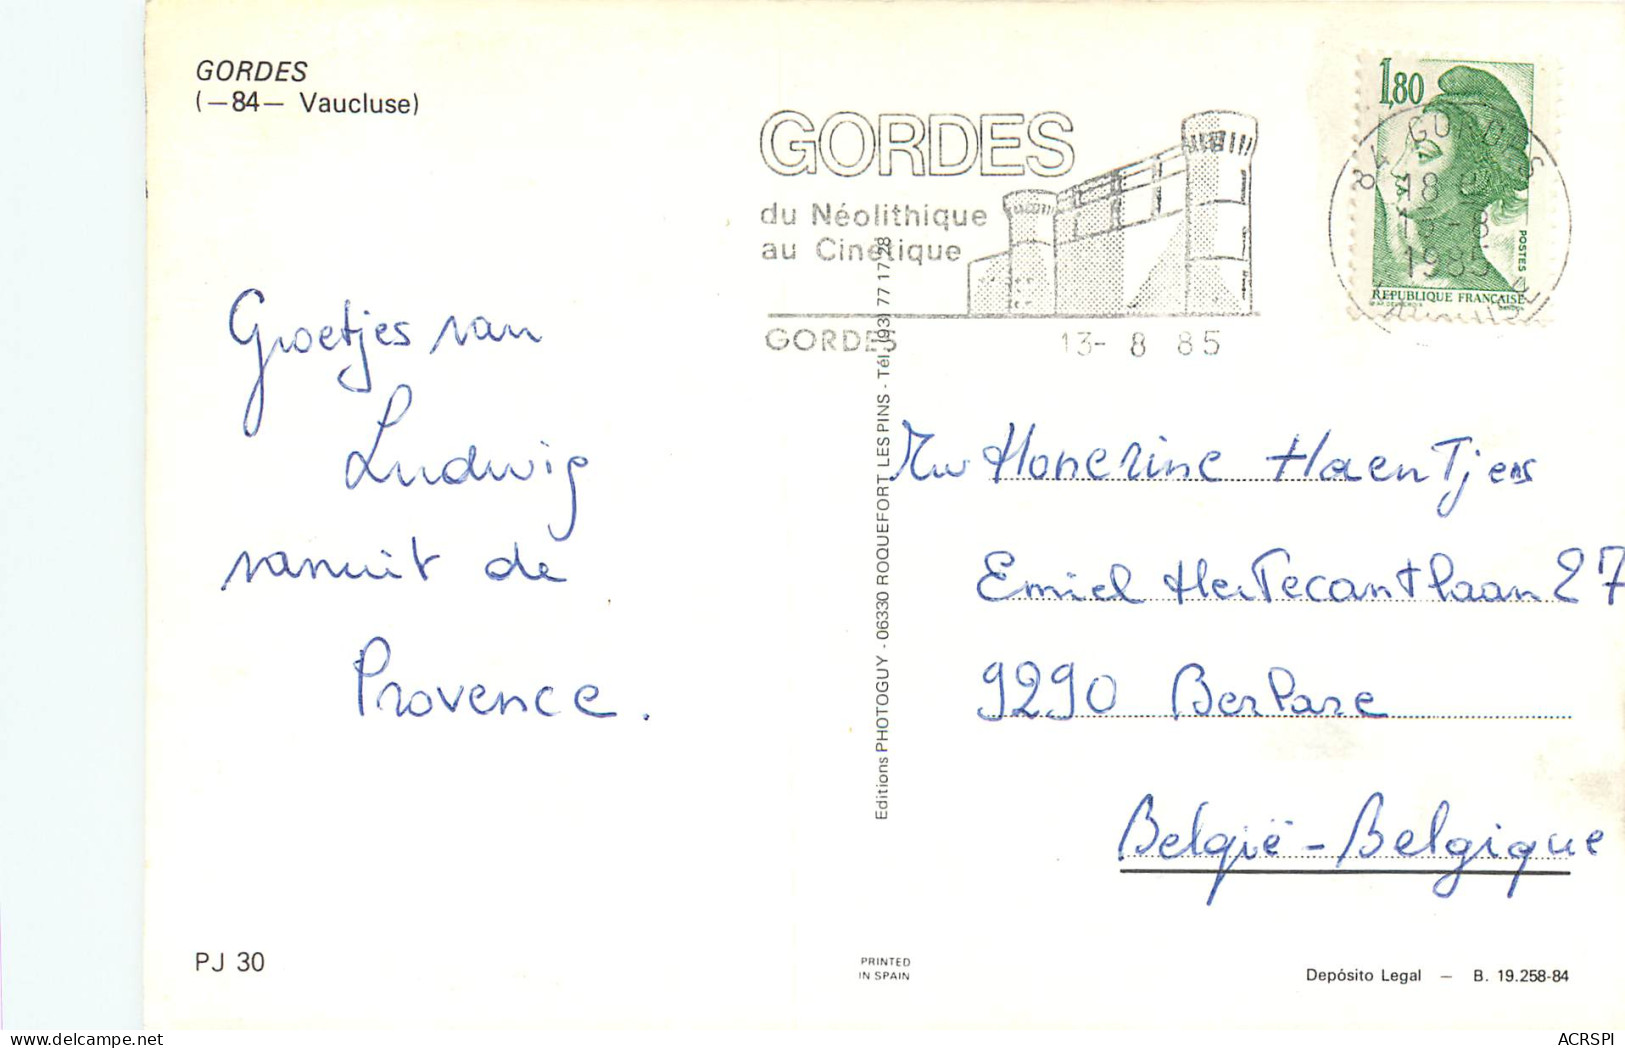 GORDES
(—84— Vaucluse)
GORDES
du Néolithique
au Cinétique
GORDES
13- 8 85
1,80
POSTES
REPUBLIQUE FRANÇAISE
84 GORDES
18 H
13-8
1985
Vaucluse
Groetjes van
Ludwig
vanuit de
Provence.
Editions PHOTOGUY - 06330 ROQUEFORT LES PINS - Tél. (93) 77 17 28
Mw Honorine Haentjens
Emiel Hertecantlaan 27
9290 Berlare
België - Belgique
PJ 30
PRINTED
IN SPAIN
Depósito Legal — B. 19.258-84
ACRSPI